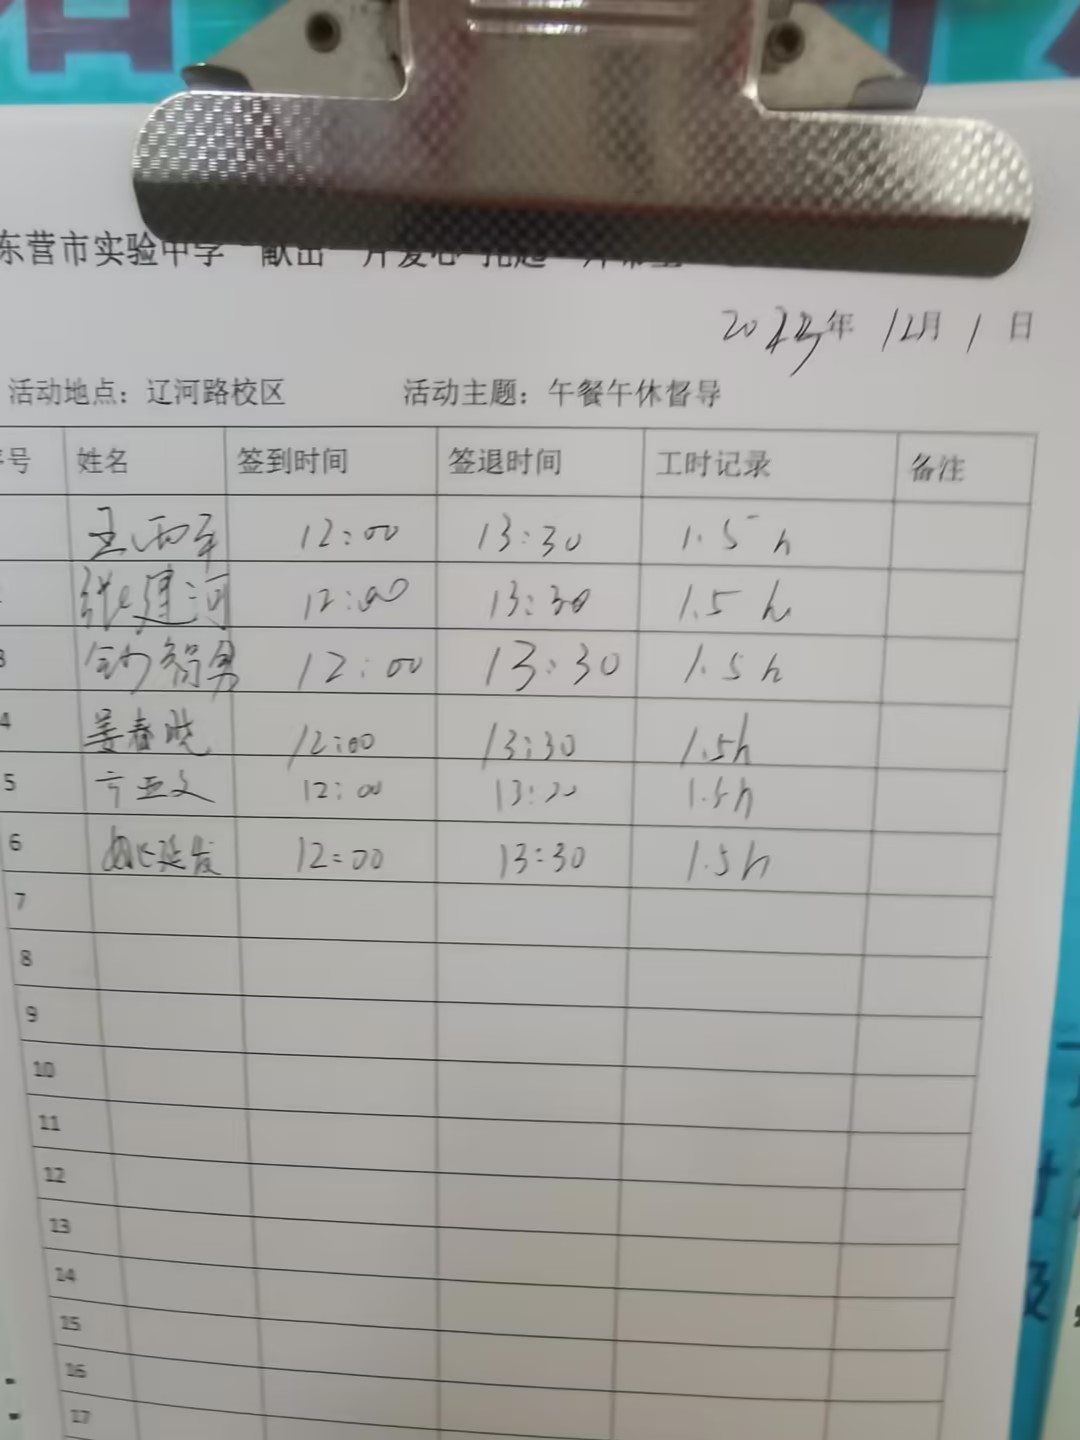 东营市实验中学 献出一片爱心 托起一片希望
年 12月 1 日
活动地点：辽河路校区 活动主题：午餐午休督导
号 姓名 签到时间 签退时间 工时记录 备注
12:00 13:30 1.5 h
张建河 12:00 13:30 1.5 h
3 12:00 13:30 1.5 h
4 姜春晓 12:00 13:30 1.5h
5 12:00 1.5h
6 姚延发 12=00 13:30 1.5h
7
8
9
10
11
12
13
14
15
16
17